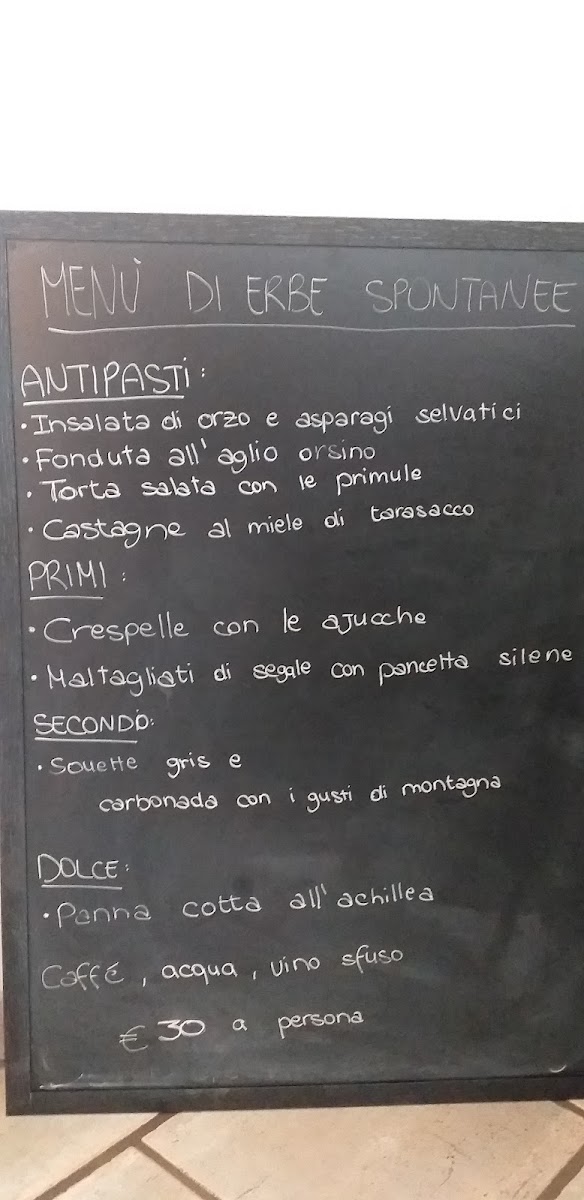 MENÙ DI ERBE SPONTANEE
ANTIPASTI:
• Insalata di orzo e asparagi selvatici
• Fonduta all'aglio orsino
• Torta salata con le primule
• Castagne al miele di tarasacco
PRIMI:
• Crespelle con le ajucche
• Maltagliati di segale con pancetta silene
SECONDO:
• Souette gris e
carbonada con i gusti di montagna
DOLCE:
• Panna cotta all'achillea
Caffé, acqua, vino sfuso
€ 30 a persona